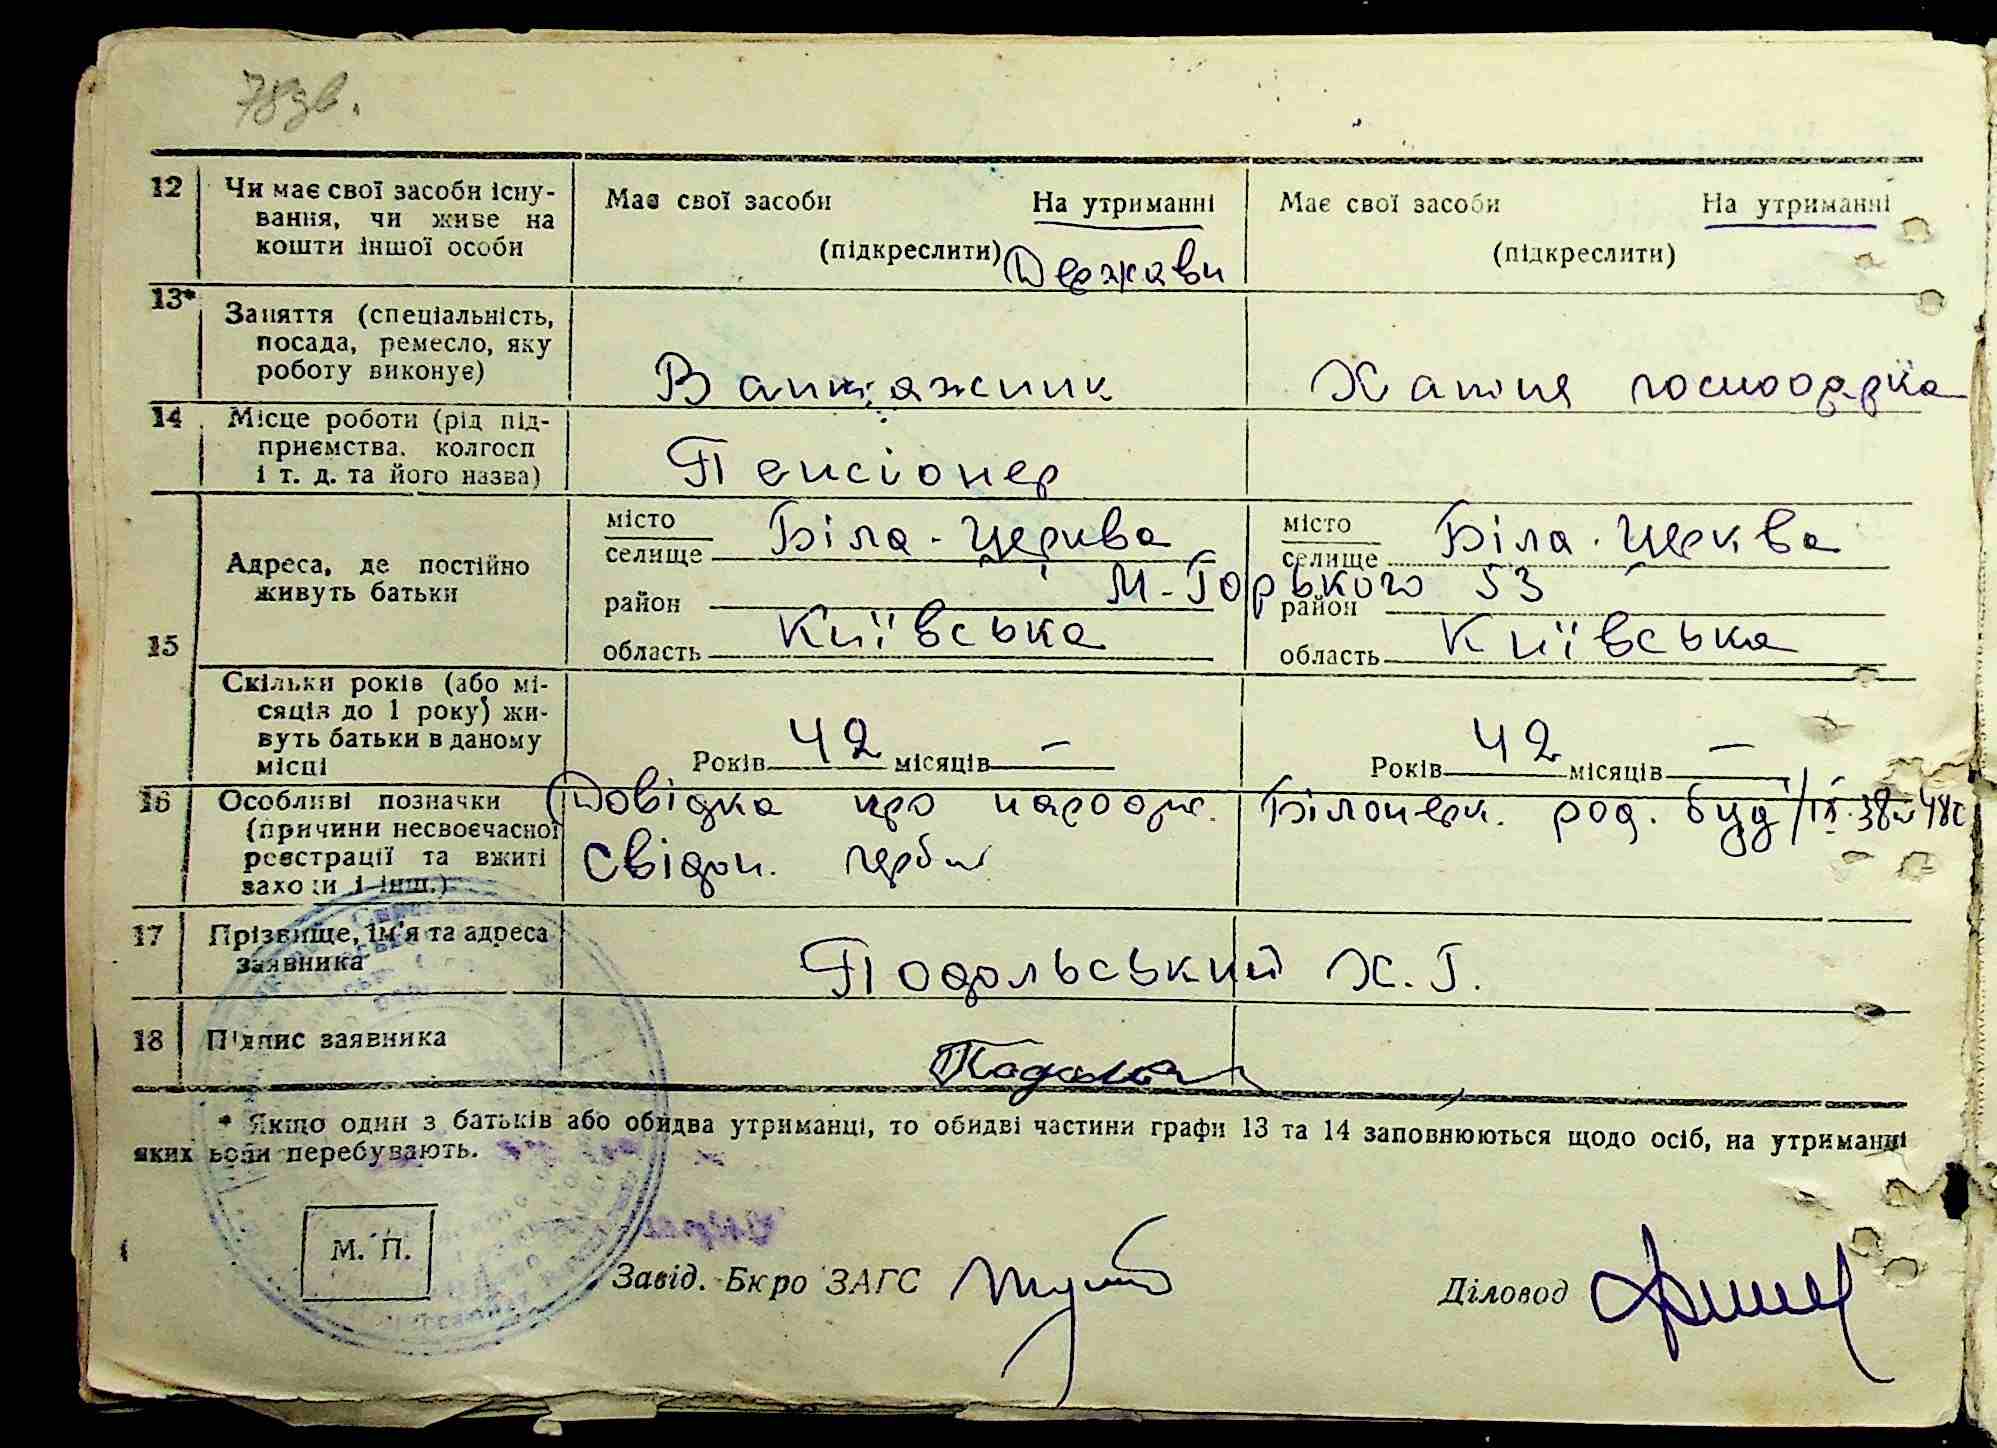 78зв.
12 Чи має свої засоби існу- Має свої засоби На утриманні Має свої засоби На утриманні
вання, чи живе на (підкреслити) Держави (підкреслити)
кошти іншої особи
13* Заняття (спеціальність,
посада, ремесло, яку
роботу виконує) Вантажник Хатня господарка
14 Місце роботи (рід під-
приємства, колгосп Пенсіонер
і т. д. та його назва)
місто Біла-Церква місто Біла-Церква
селище селище
Адреса, де постійно
живуть батьки М-Горького 53
район район
15 область Київська область Київська
Скільки років (або мі-
сяців до 1 року) жи-
вуть батьки в даному
місці Років 42 місяців — Років 42 місяців —
16 Особливі позначки Довідка про народж. Білоцерк. род. буд
(причини несвоєчасної
реєстрації та вжиті Свідоц.
заходи і інш.)
17 Прізвище, ім'я та адреса
заявника Подольський Х.Г.
18 Підпис заявника
* Якщо один з батьків або обидва утриманці, то обидві частини графи 13 та 14 заповнюються щодо осіб, на утриманні
яких вони перебувають.
М. П.
Завід. Бюро ЗАГС Діловод